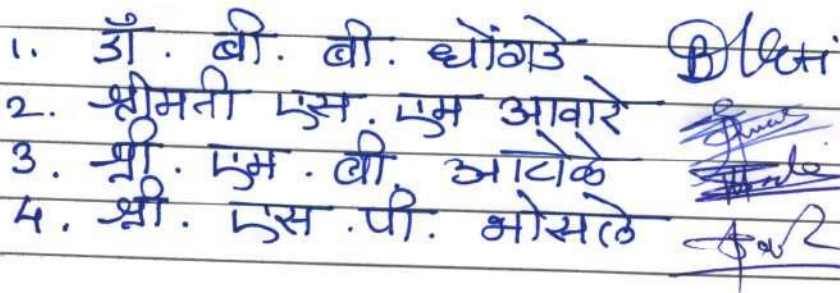 1. डॉ. बी. बी. धोंगडे
2. श्रीमती एस. एम आवारे
3. श्री. एम. बी. आटोळे
4. श्री. एस. पी. भोसले